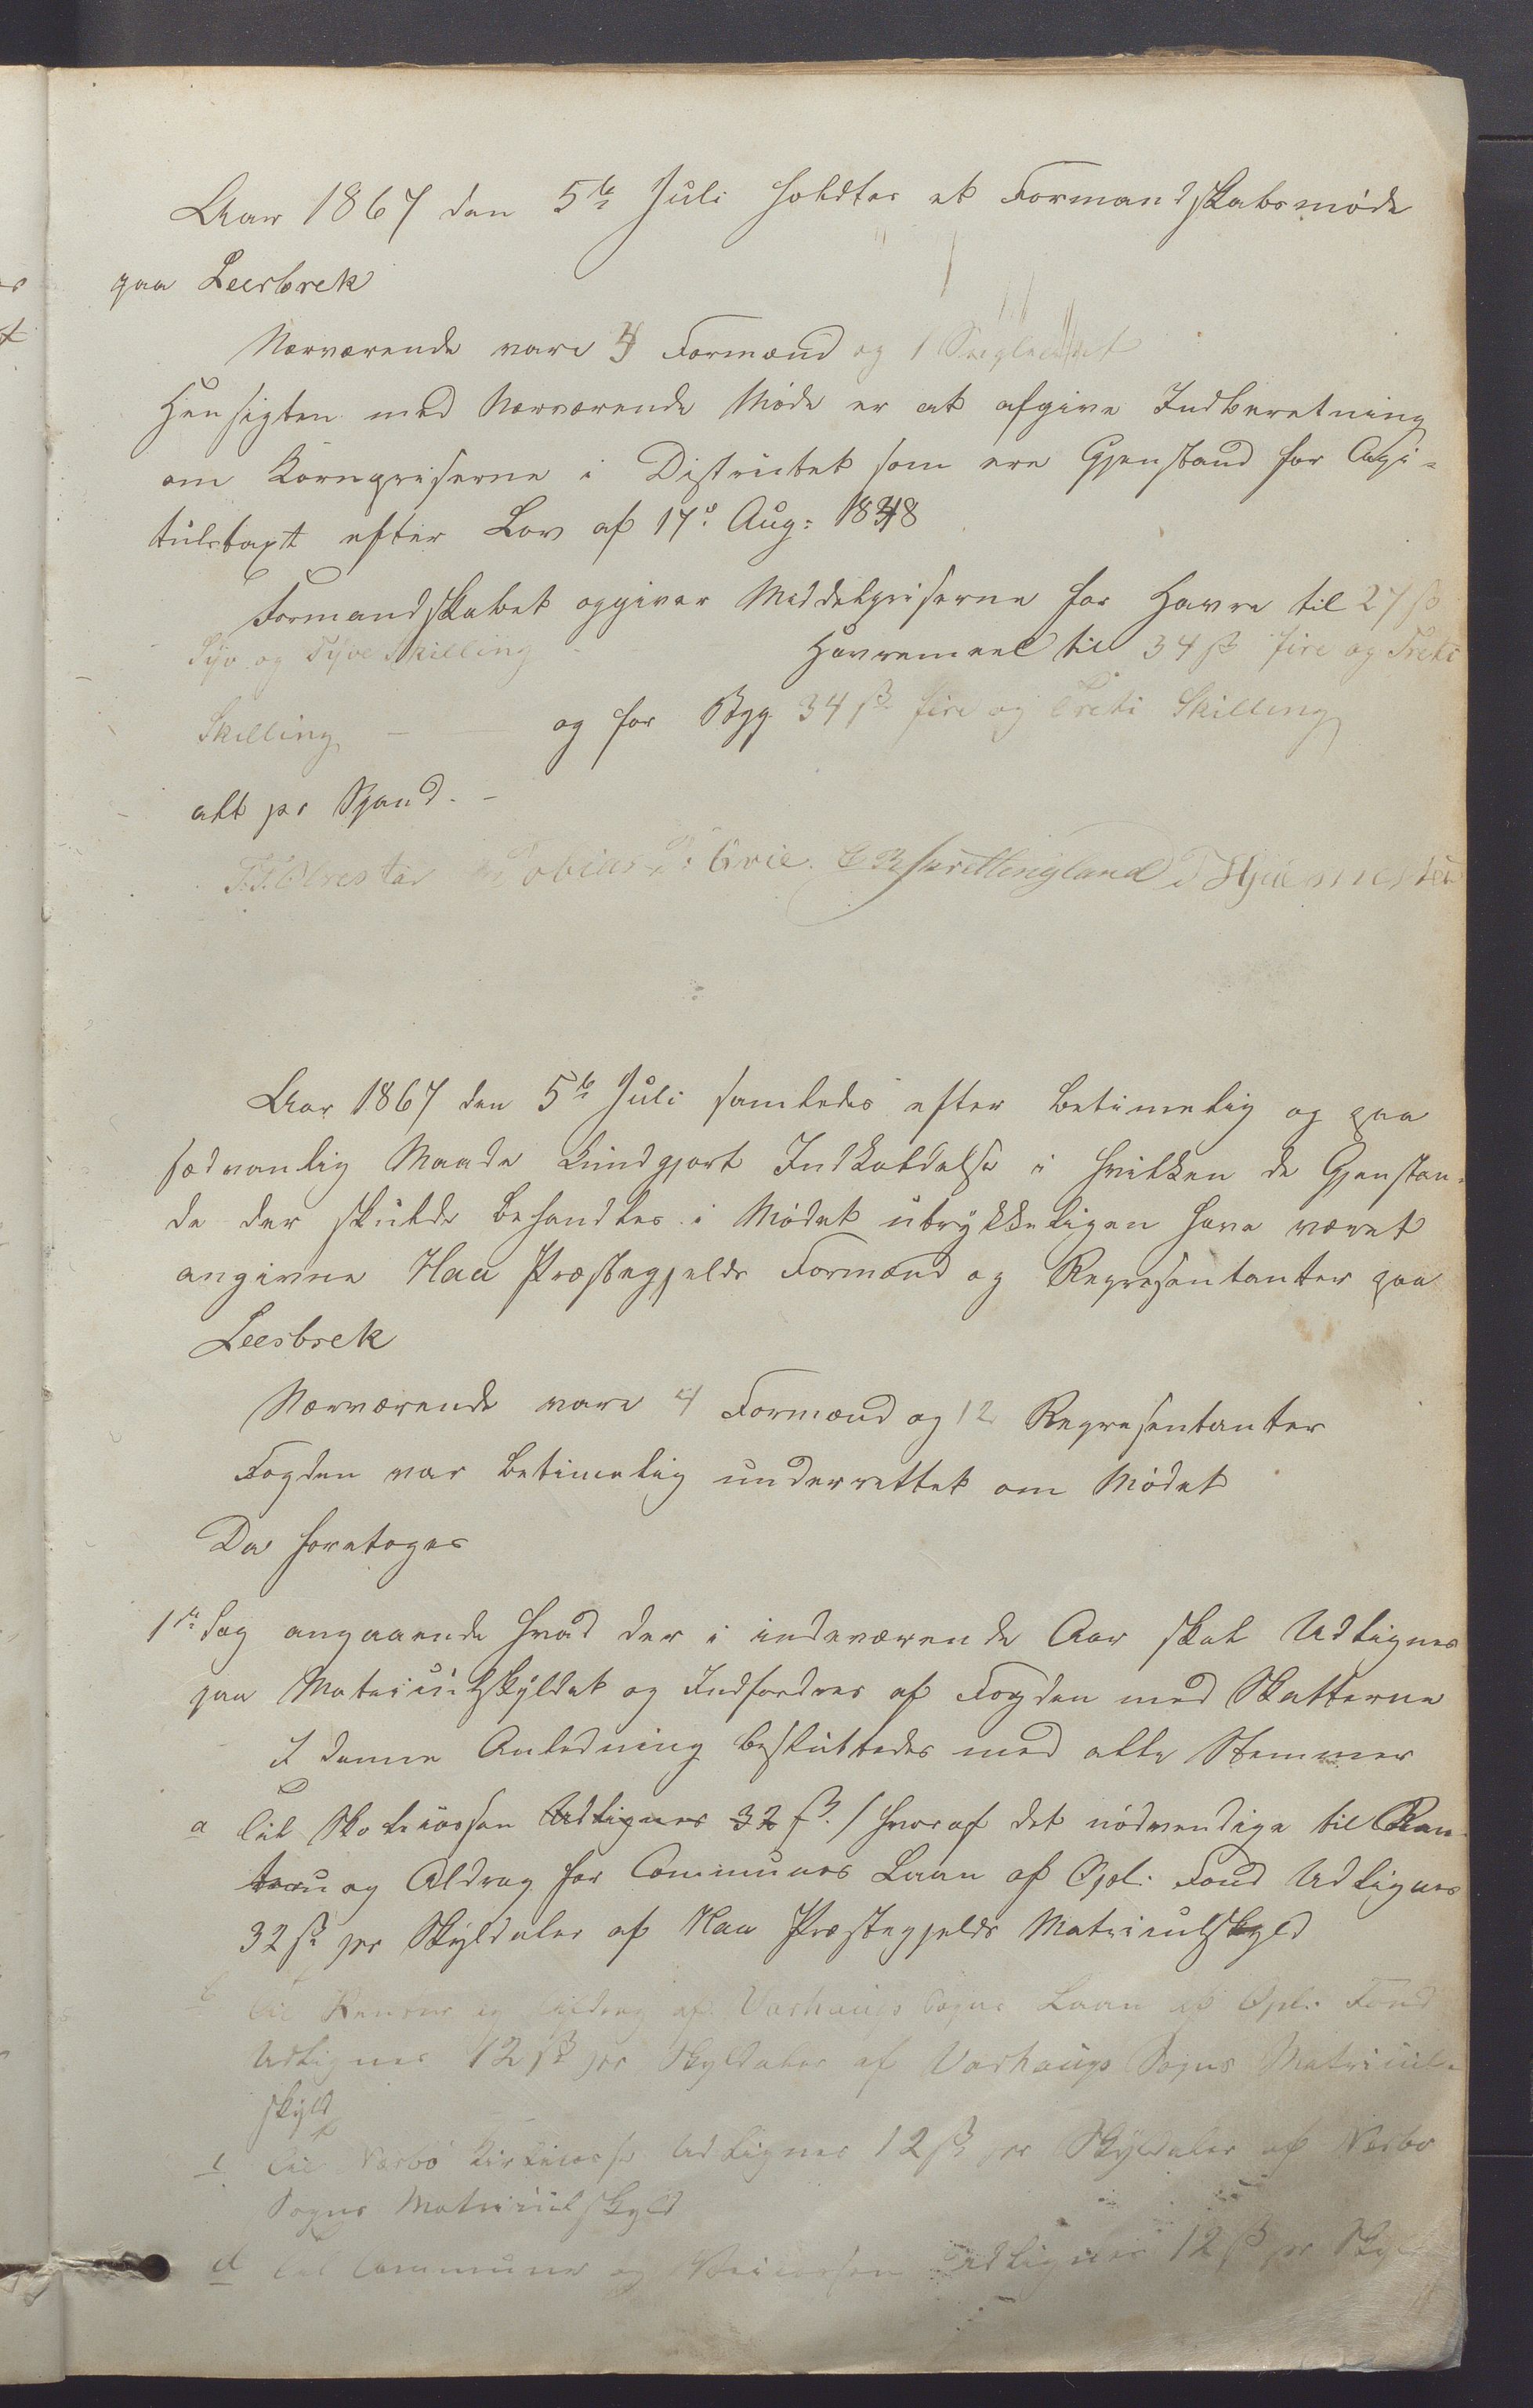 Aar 1867 den 5te Juli holdtes et Formandskabsmøde
paa Leesbrek
Nærværende vare 4 Formænd og 1
Hensigten med Nærværende Møde er at afgive Indberetning
om Kornpriserne i Districtet som ere Gjenstand for Capi-
tulstaxt efter Lov af 17de Aug: 1848
Formandskabet opgiver Middelpriserne for Havre til 27 ß
Syv og Tyve Skilling Havremeel til 34 ß fire og Treti
Skilling - og for Byg 34 ß fire og Treti Skilling
alt pr Spand. -
T. T. Obrestad Tobias Evie. C B Skretlingland
Aar 1867 den 5te Juli samledes efter betimelig og paa
sædvanlig Maade kundgjort Indkaldelse i hvilken de Gjenstan-
de der skulde behandles i Mødet utrykkeligen have været
angivne Haa Præstegjelds Formænd og Representanter paa
Leesbrek
Nærværende vare 4 Formænd og 12 Representanter
Fogden var betimelig underrettet om Mødet
Da foretoges
1ste Sag angaaende hvad der i indeværende Aar skal Udlignes
paa Matriculskyldet og Indfordres af Fogden med Skatterne
I denne Anledning besluttedes med alle Stemmer
a Til Skolecassen Udlignes 32 ß / hvoraf det nødvendige til Ren-
ter og Afdrag for Communes Laan af Opl: Fond Udlignes
32 ß pr Skyldaler af Haa Præstegjelds Matriculskyld
b Til Renter og Afdrag af Varhaugs Sogns Laan af Opl: Fond
Udlignes 12 ß pr Skyldaler af Varhaugs Sogns Matricul-
skyld
c Til Nærbø Kirkecasse Udlignes 12 ß pr Skyldaler af Nærbø
Sogns Matriculskyld
d Til Commune og Veicassen Udlignes 12 ß pr